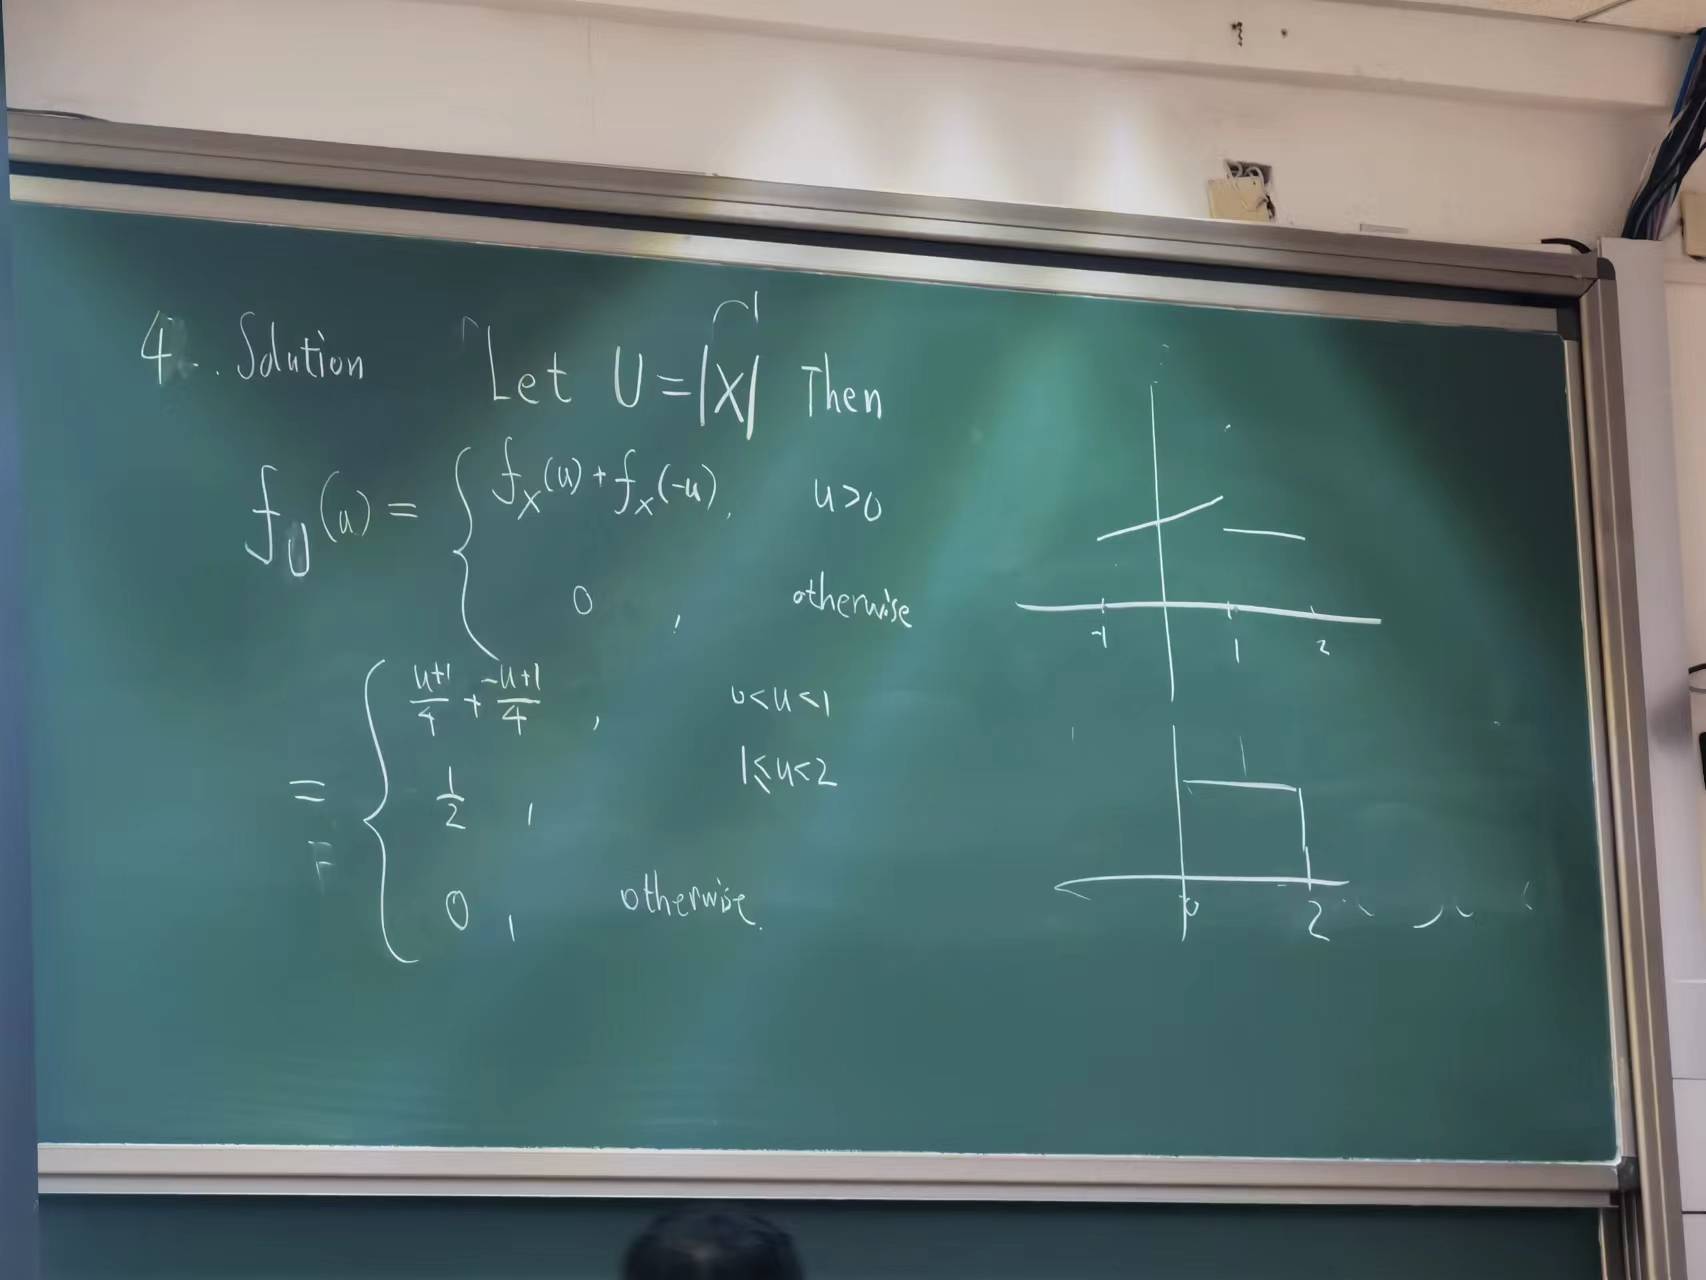 4. Solution Let U = |X| Then
f_U(u) = { f_X(u) + f_X(-u), u>0
0, otherwise
= { \frac{u+1}{4} + \frac{-u+1}{4}, 0<u<1
\frac{1}{2}, 1≤u<2
0, otherwise.
-1 1 2
0 2